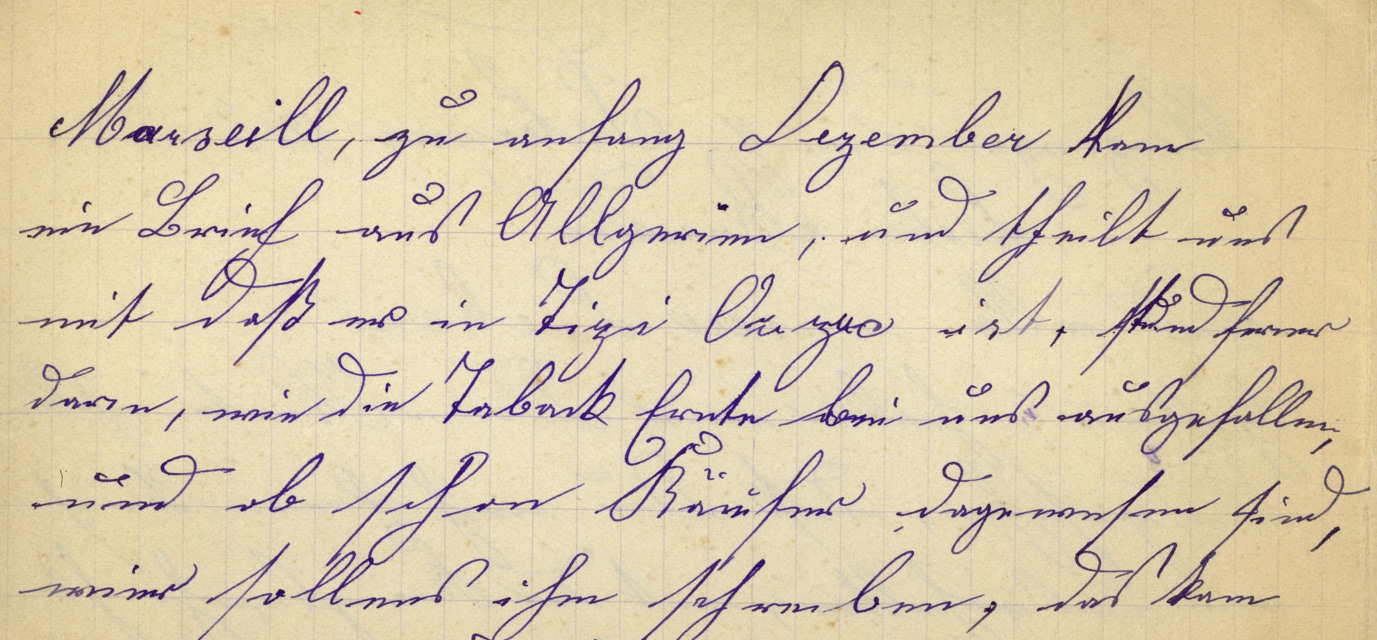 Marseill, zu anfang Dezember kam
ein Brief aus Allgerien, und theilt uns
mit daß er in Tizi Ouzuo ist, stund ferner
darin, wie die Taback Ernte bei uns ausgefallen,
und ob schon Käufer dagewesen sind,
wier sollens ihm schreiben, das kam